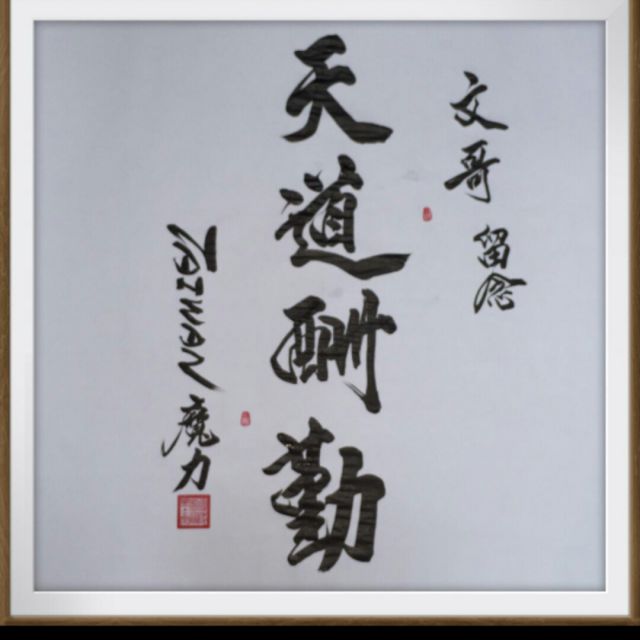 文哥 留念
天道酬勤
TAIWAN 魔力